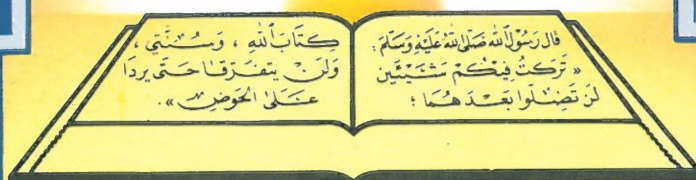 قال رَسُولُ اللّٰه صَلَّى اللّٰهُ عَلَيْهِ وَسَلَّمَ :
« تَرَكْتُ فِيْكُمْ شَيْئَيْنِ
لَنْ تَضِلُّوا بَعْدَ هُمَا ؛
كِتَابَ اللّٰهِ ، وَسُنَّتِي ،
وَلَنْ يَتَفَرَّقَا حَتَّى يَرِدَا
عَلَىَّ الحَوضِ ».